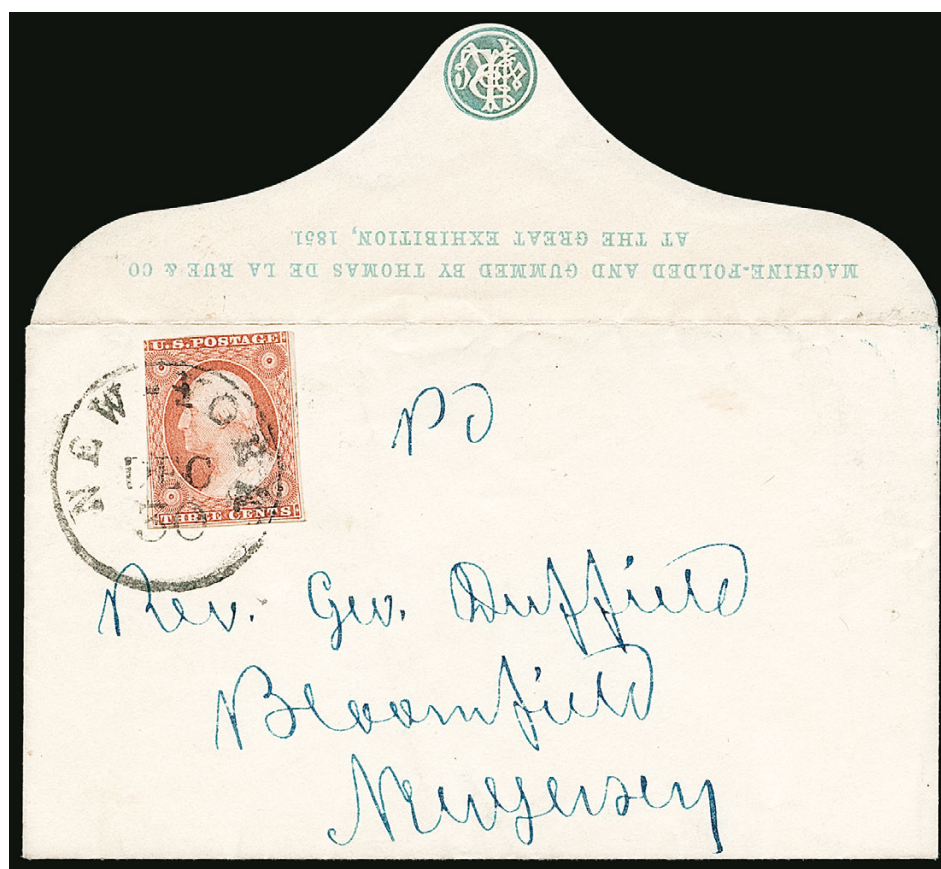 MACHINE-FOLDED AND GUMMED BY THOMAS DE LA RUE & CO
AT THE GREAT EXHIBITION, 1851.
U.S. POSTAGE
THREE CENTS
NEW-YORK
DEC
30
Rev. Geo. Duffield
Bloomfield
New Jersey